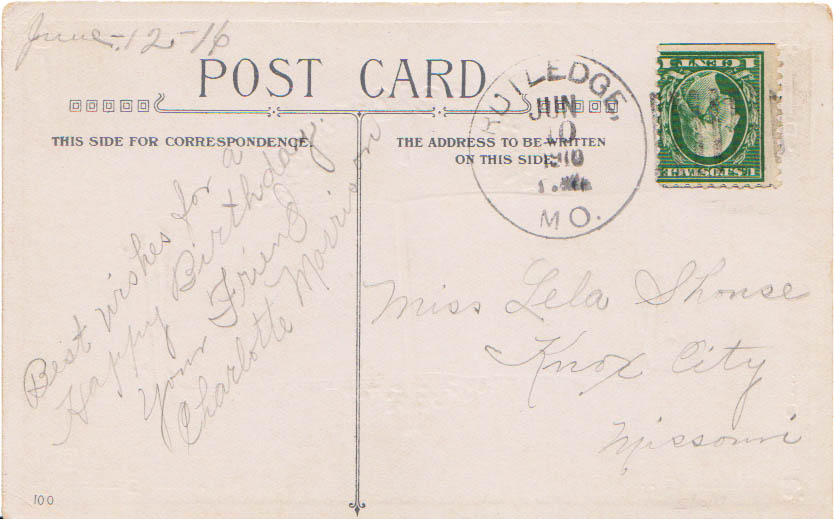 June-12-16
POST CARD
THIS SIDE FOR CORRESPONDENCE.
THE ADDRESS TO BE WRITTEN
ON THIS SIDE
RUTLEDGE,
JUN
10
MO.
1 CENT 1
U.S. POSTAGE
Best wishes for a
Happy Birthday.
Your Friend
Charlotte Morrison
Miss Lela Shouse
Knox City
Missouri
100